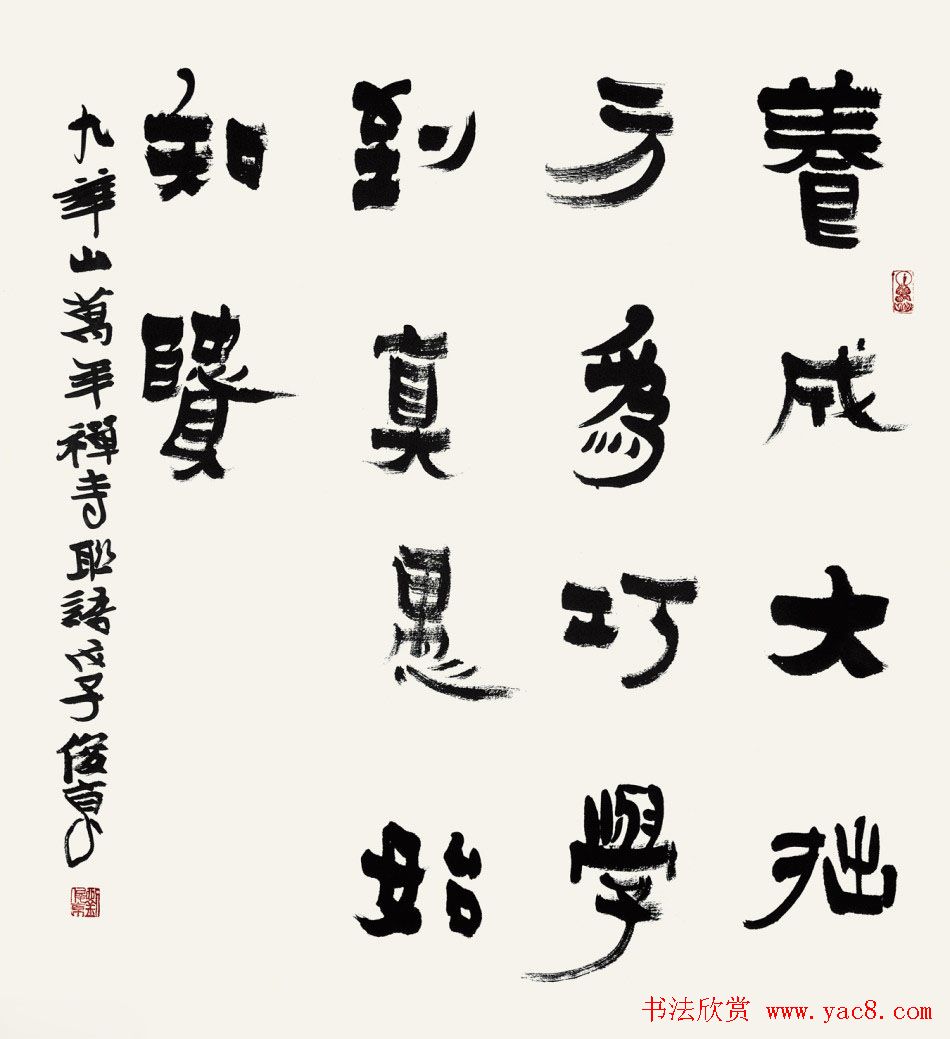 養成大拙
方爲巧學
到真愚始
知賢
九華山萬年禪寺聯語戊子俊京
书法欣赏 www.yac8.com